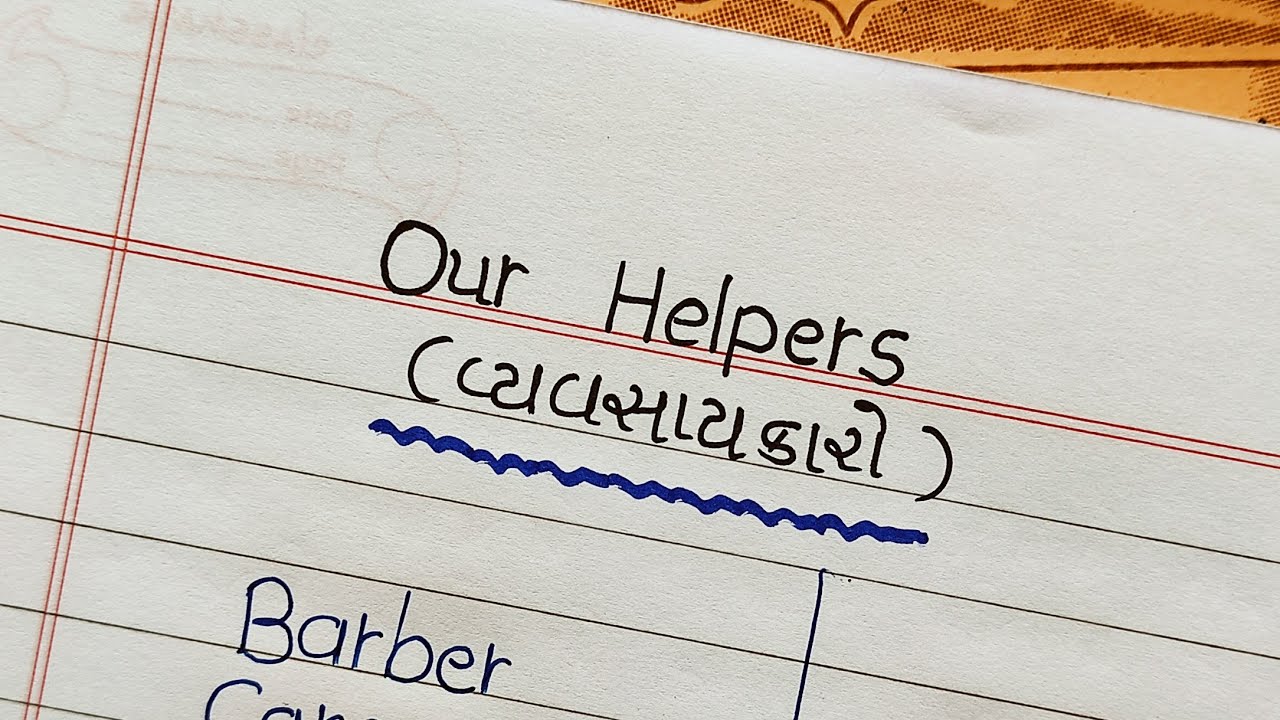 Our Helpers
(વ્યવસાયકારો)
Barber